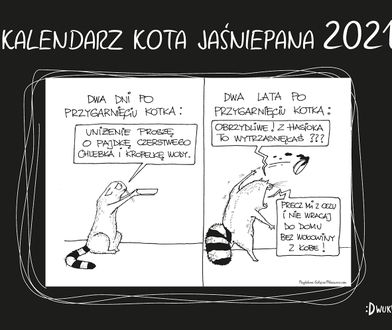 KALENDARZ KOTA JAŚNIEPANA 2021
DWA DNI PO
PRZYGARNIĘCIU KOTKA:
UNIŻENIE PROSZĘ
O PAJDKĘ CZERSTWEGO
CHLEBKA I KROPELKĘ WODY.
DWA LATA PO
PRZYGARNIĘCIU KOTKA:
OBRZYDLIWE! Z HASIOKA
TO WYTRZASNĘŁAŚ???
PRECZ MI Z OCZU
I NIE WRACAJ
DO DOMU
BEZ WOŁOWINY
Z KOBE!
:DWUK